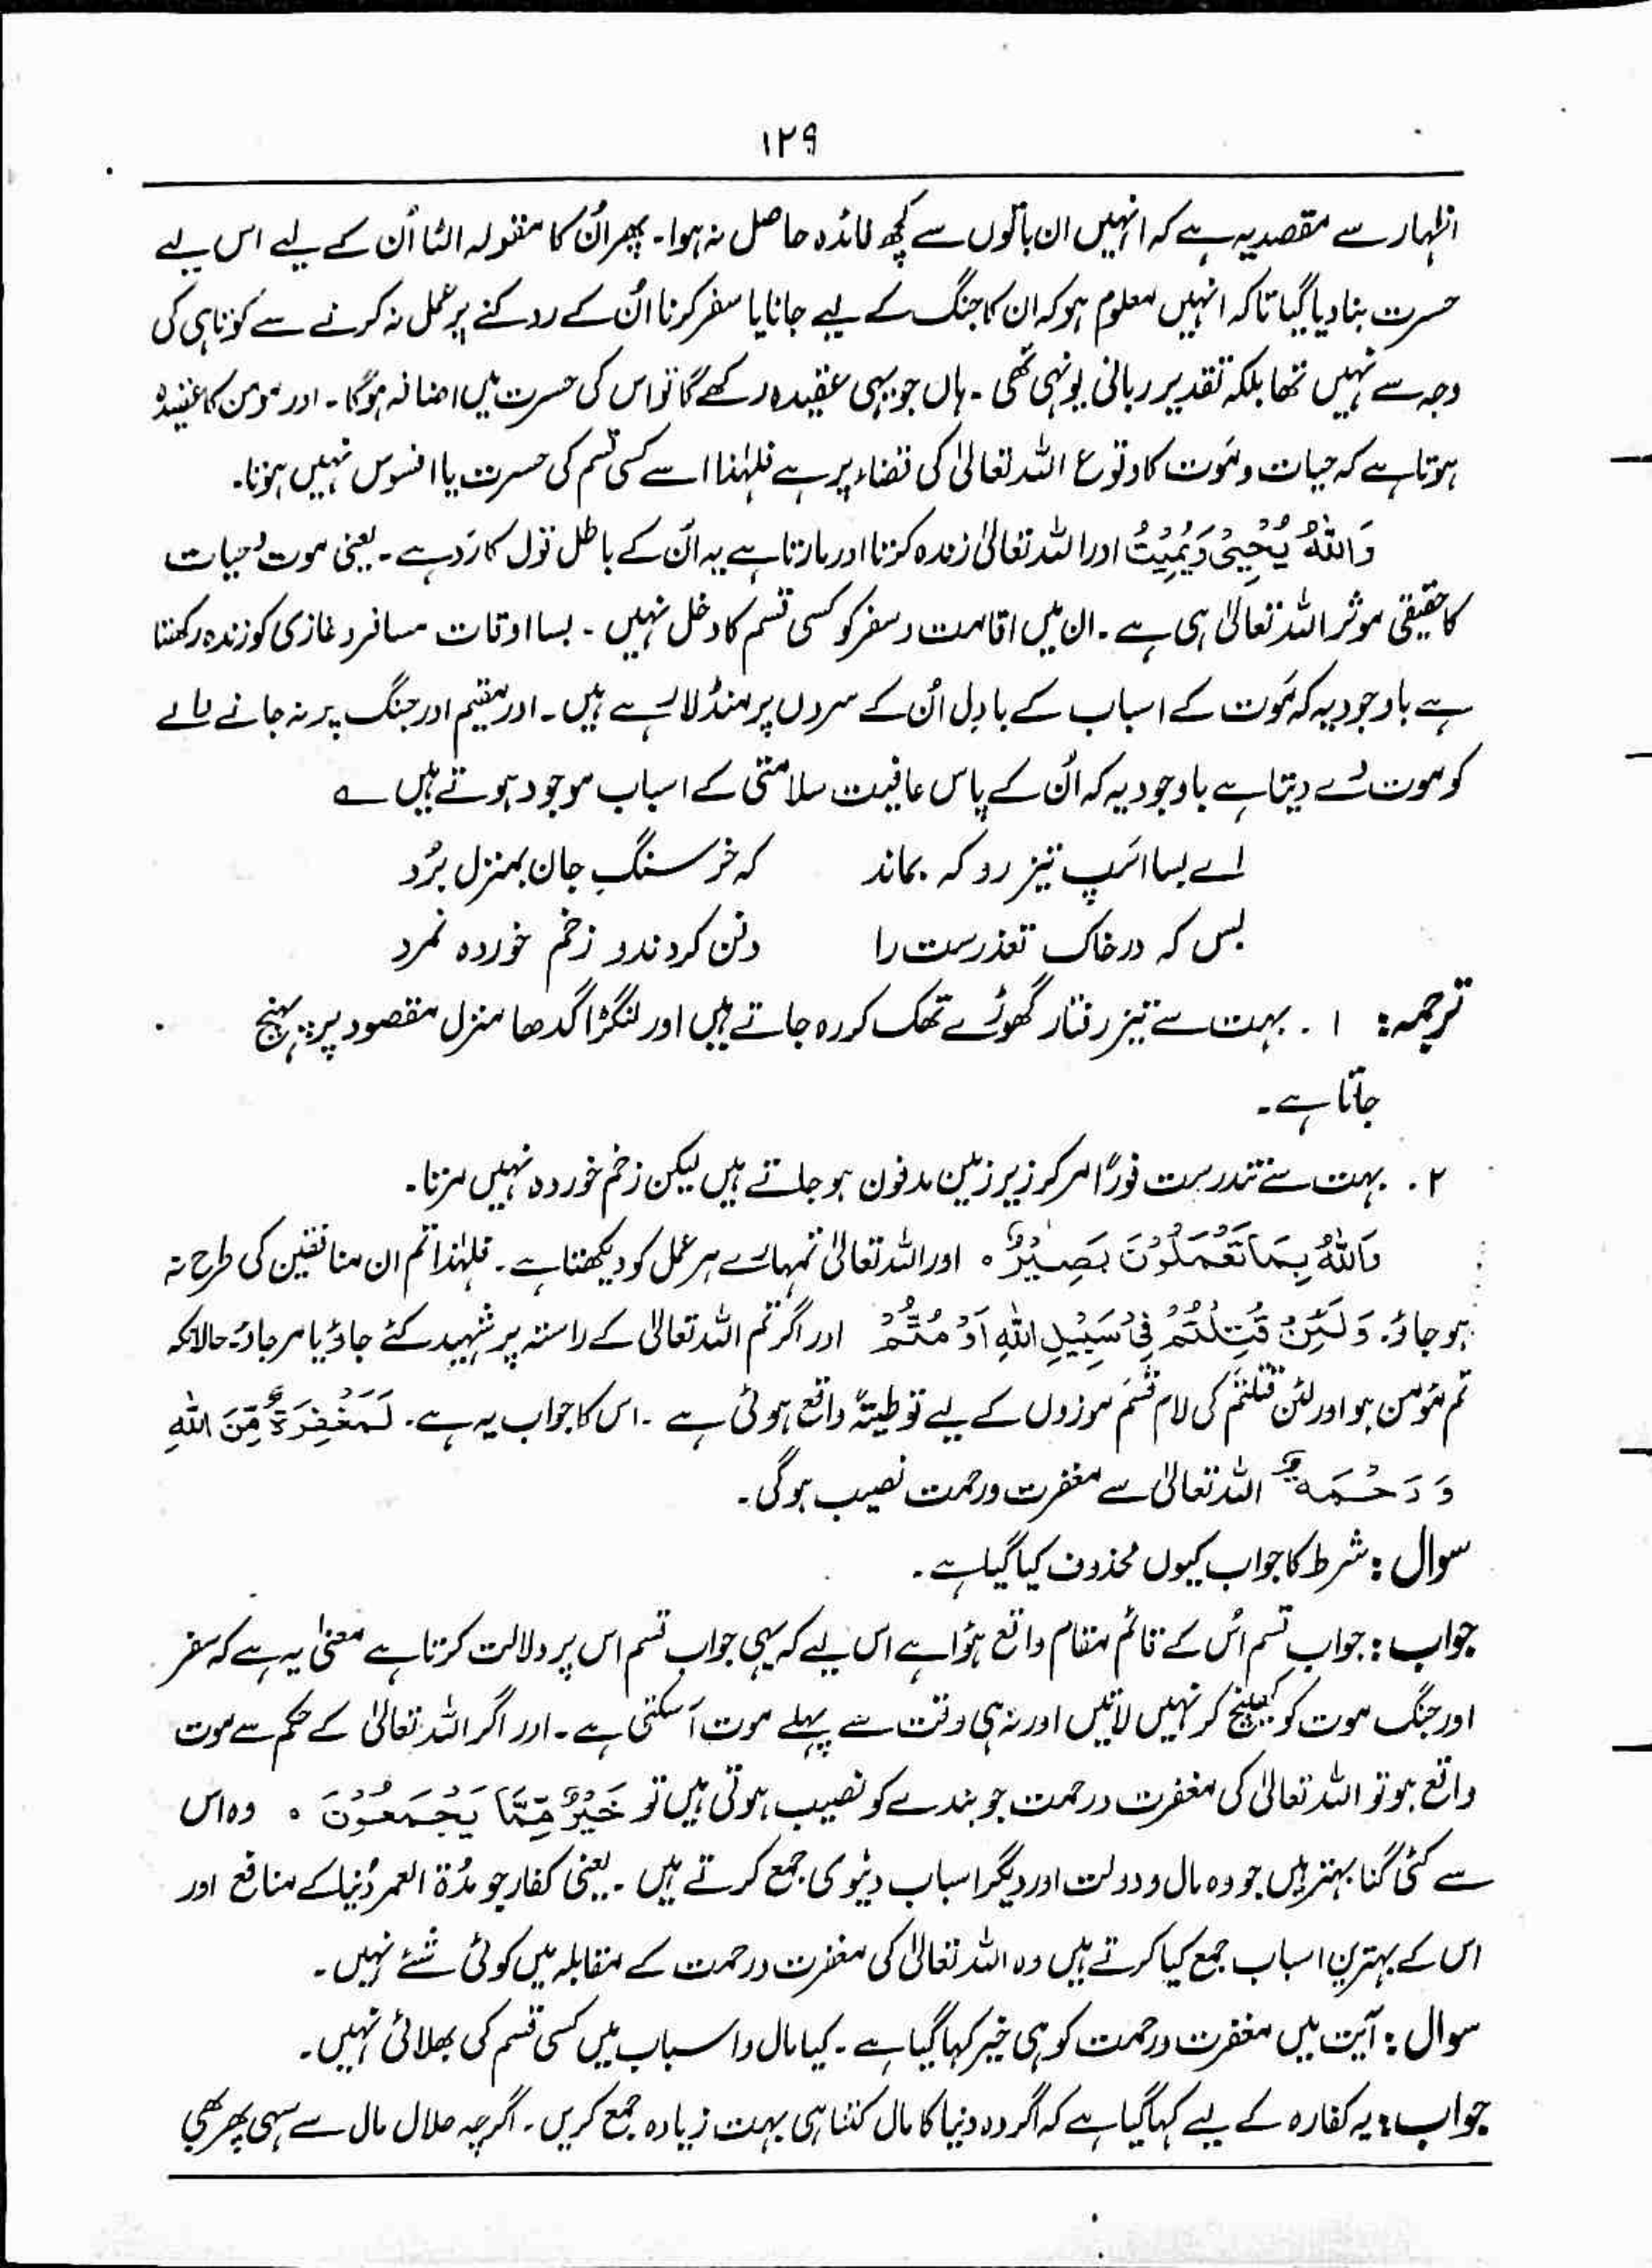 ۱۲۹
اظہار سے مقصد یہ ہے کہ انہیں ان باتوں سے کچھ فائدہ حاصل نہ ہوا۔ پھر اُن کا مقولہ الٹا اُن کے لیے اس لیے
حسرت بنا دیا گیا تاکہ انہیں معلوم ہو کہ ان کا جنگ کے لیے جانا یا سفر کرنا اُن کے روکنے پر عمل نہ کرنے سے کوتاہی کی
وجہ سے نہیں تھا بلکہ تقدیر ربانی یونہی تھی ۔ ہاں جو یہی عقیدہ رکھے گا تو اس کی حسرت میں اضافہ ہو گا ۔ اور مومن کا عقیدہ
ہوتا ہے کہ حیات و مَوت کا وقوع اللہ تعالیٰ کی قضاء پر ہے فلہٰذا اسے کسی قسم کی حسرت یا افسوس نہیں ہوتا۔
وَاللّٰهُ يُحْيِيْ وَيُمِيْتُ اور اللہ تعالیٰ زندہ کرتا اور مارتا ہے یہ اُن کے باطل قول کا رَد ہے ۔ یعنی موت و حیات
کا حقیقی موثر اللہ تعالیٰ ہی ہے ۔ ان میں اقامت و سفر کو کسی قسم کا دخل نہیں ۔ بسا اوقات مسافر و غازی کو زندہ رکھتا
ہے باوجودیہ کہ مَوت کے اسباب کے بادل اُن کے سروں پر منڈلا رہے ہیں ۔ اور مقیم اور جنگ پر نہ جانے والے
کو موت دے دیتا ہے باوجودیہ کہ اُن کے پاس عافیت سلامتی کے اسباب موجود ہوتے ہیں ؎
اے بسا اسَپ تیز رو کہ بماند کہ خر سنگِ جان بمنزل برُد
بس کہ در خاک تندرست را دفن کردند و زخم خوردہ نمرد
ترجمہ: ۱ . بہت سے تیز رفتار گھوڑے تھک کر رہ جاتے ہیں اور لنگڑا گدھا منزل مقصود پر پہنچ
جاتا ہے ۔
۲ . بہت سے تندرست فورًا مر کر زیر زمین مدفون ہو جاتے ہیں لیکن زخم خوردہ نہیں مرتا۔
وَاللّٰهُ بِمَا تَعْمَلُوْنَ بَصِيْرٌ ۝ اور اللہ تعالیٰ تمہارے ہر عمل کو دیکھتا ہے ۔ فلہٰذا تم ان منافقین کی طرح نہ
ہو جاؤ۔ وَلَئِنْ قُتِلْتُمْ فِيْ سَبِيْلِ اللّٰهِ اَوْ مُتُّمْ اور اگر تم اللہ تعالیٰ کے راستہ پر شہید کئے جاؤ یا مر جاؤ۔ حالانکہ
تم مؤمن ہو اور لئن قتلتم کی لام قسَم موزوں کے لیے توطیتہً واقع ہوئی ہے ۔ اس کا جواب یہ ہے ۔ لَمَغْفِرَةٌ مِّنَ اللّٰهِ
وَ رَحْمَةٌ اللہ تعالیٰ سے مغفرت و رحمت نصیب ہو گی ۔
سوال : شرط کا جواب کیوں محذوف کیا گیا ہے ۔
جواب : جواب قسم اُس کے قائم مقام واقع ہؤا ہے اس لیے کہ یہی جواب قسم اس پر دلالت کرتا ہے معنیٰ یہ ہے کہ سفر
اور جنگ موت کو کھینچ کر نہیں لاتیں اور نہ ہی وقت سے پہلے موت آ سکتی ہے ۔ اور اگر اللہ تعالیٰ کے حکم سے موت
واقع ہو تو اللہ تعالیٰ کی مغفرت و رحمت جو بندے کو نصیب ہوتی ہیں تو خَيْرٌ مِّمَّا يَجْمَعُوْنَ ۝ وہ اس
سے کئی گنا بہتر ہیں جو وہ مال و دولت اور دیگر اسباب دنیوی جمع کرتے ہیں ۔ یعنی کفار جو مدُۃ العمر دُنیا کے منافع اور
اس کے بہترین اسباب جمع کیا کرتے ہیں وہ اللہ تعالیٰ کی مغفرت و رحمت کے مقابلہ میں کوئی شئے نہیں ۔
سوال : آیت میں مغفرت و رحمت کو ہی خیر کہا گیا ہے ۔ کیا مال و اسباب میں کسی قسم کی بھلائی نہیں ۔
جواب : یہ کفارہ کے لیے کہا گیا ہے کہ اگر وہ دنیا کا مال کتنا ہی بہت زیادہ جمع کریں ۔ اگرچہ حلال مال سے سہی پھر بھی